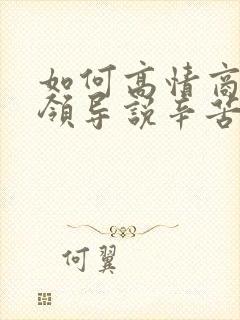 如何高情商
领导说辛苦
何翼